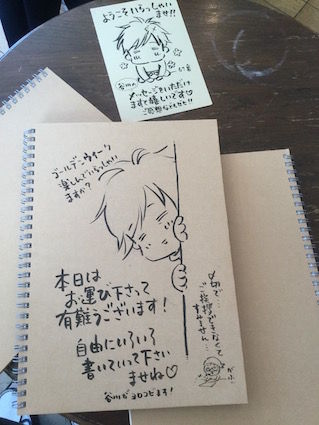 ようこそいらっしゃい
ませ!!
メッセージをいただけ
ますと嬉しいです♡
ゴールデンウィーク
楽しんでいらっしゃい
ますか?
本日は
お運び下さって
有難うございます!
自由にいろいろ
書いていって下さい
ませね♡
谷川がヨロコビます!
〆切で…
ご挨拶できなくて
すみません…